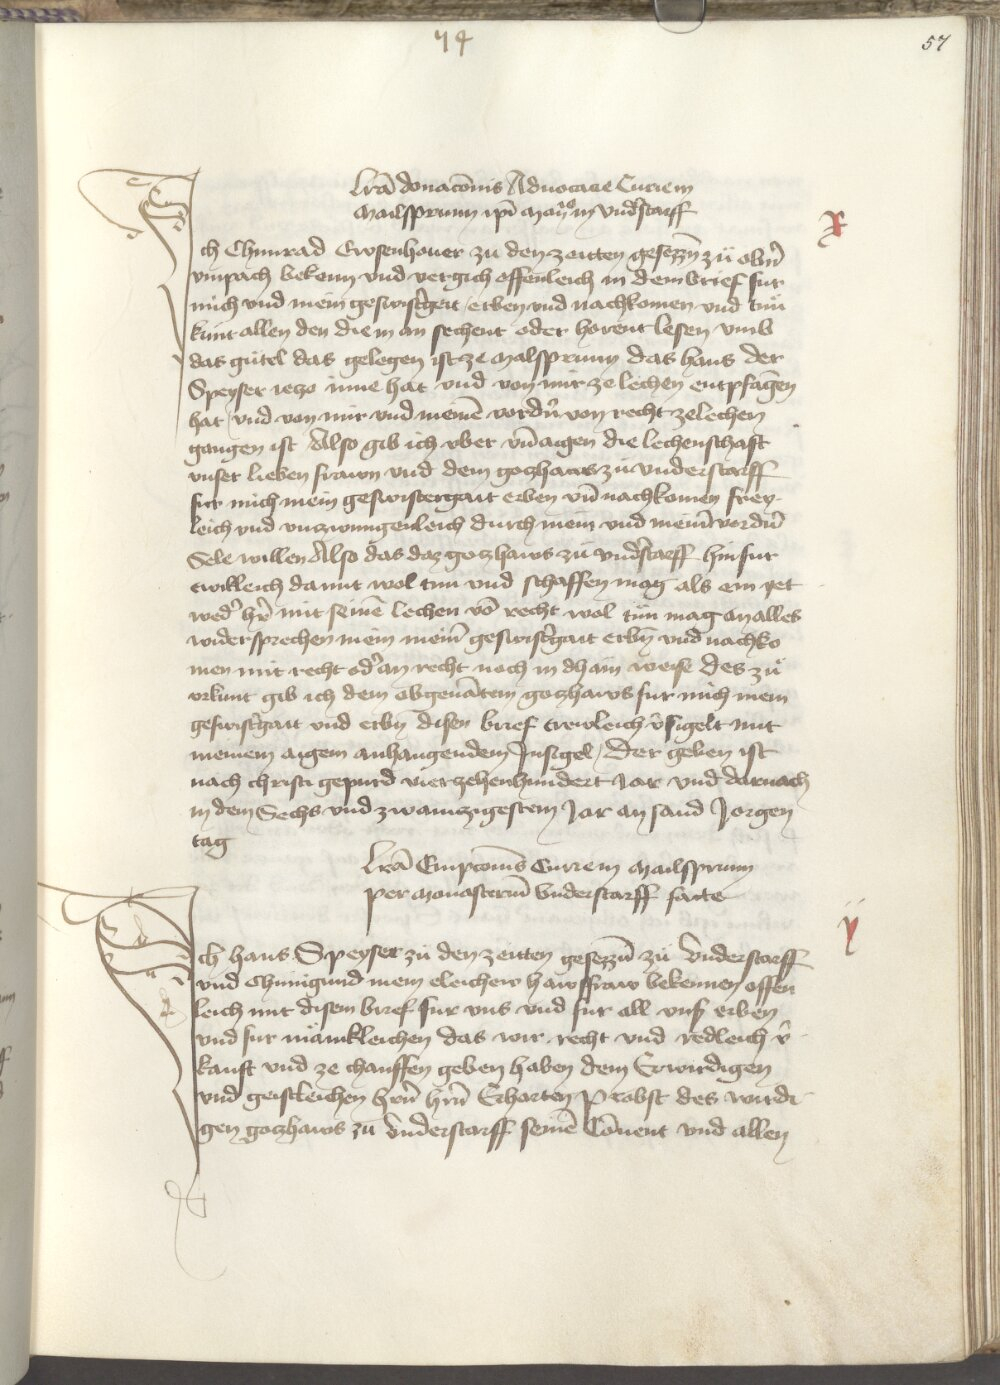 74
57
Lrã donacõnis Aduocacie Curie in
Mailsprunn ipi Mon in Vnd'starff
x
Ich Chunrad Grosenhouer zu den zeitten gesezzn zü obn'
vinpach bekenn vnd vergich offenleich in dem brief fur
mich vnd mein geswist'gett erben vnd nachkomen vnd tün
kunt allen den die in an sechent oder horent lesen vmb
das gütel das gelegen ist ze Malsprunn das hans der
Speyser iezo inne hat vnd von mir ze lechen entpfagen
hat vnd von mir vnd meinē vordn' von recht ze lechen
gangen ist Also gib ich vber vn̄ aigen die lechenschaft
vnser lieben frawn vnd dem gozhaws zu vnderstarff
fur mich mein geswistergait erben vn̄ nachkomen frey
leich vnd vnzwungenleich durch mein vnd meinr̄ vordn̄
Sele willen Also das daz gozhaws zü vnd'starff hinfur
ewikleich damit wol tun vnd schaffen mag als ein yet
wed' hr' mit seinē lechen vō recht wol tün mag an alles
widersprechen mein meinr̄ geswist'gait erbn̄ vnd nachko
men mit recht od' an recht noch in dhain weise Des zü
vrkunt gib ich dem obgenātem gozhaws fur mich mein
geswist'gait vnd erbn̄ disen brief trewleich v'sigelt mit
meinem aigem anhangendem Insigel / Der geben ist
nach christi gepurd vierzehenhundert Jar vnd darnach
in dem Sechs vnd zwainzigestem Jar an sand Jorgen
tag
Lrã Empcõnis Curie in Mailsprunn
per Monasteriū Vnderstarff facte
y
Ich hans Speyser zu den zeitten gesezzn̄ zü Vnderstarff
vnd Chunigund mein eleichew hawsfraw bekennen offen
leich mit disem brief fur vns vnd fur all vnß erben
vnd fur mänikleichen das wir recht vnd redleich v'
kauft vnd ze chauffen geben haben dem Erwirdigen
vnd geistleichen hrn̄ hrn̄ Erharten Probst des wirdi
gen gozhaws zu Vnderstarff seinē Cōuent vnd allen